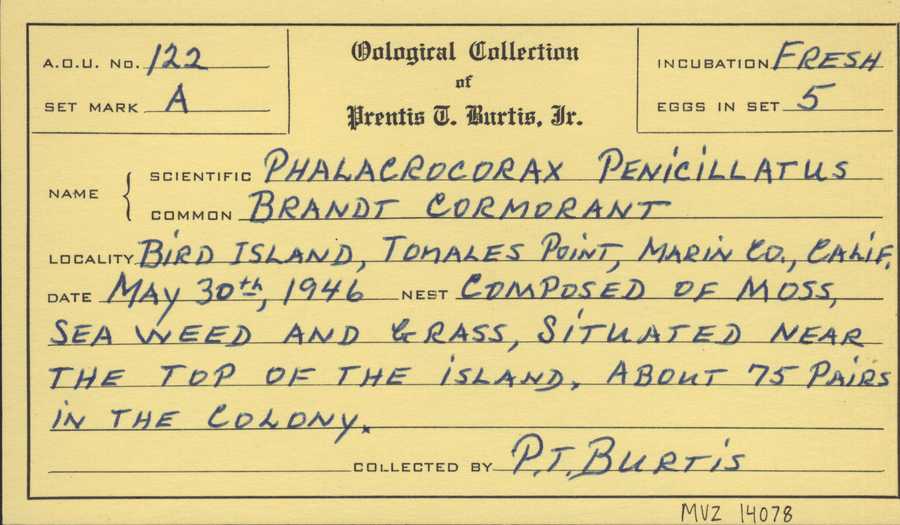 A.O.U. No. 122
SET MARK A
Oological Collection
of
Prentis T. Burtis, Jr.
INCUBATION FRESH
EGGS IN SET 5
NAME
SCIENTIFIC PHALACROCORAX PENICILLATUS
COMMON BRANDT CORMORANT
LOCALITY BIRD ISLAND, TOMALES POINT, MARIN CO., CALIF.
DATE MAY 30th, 1946 NEST COMPOSED OF MOSS,
SEA WEED AND GRASS, SITUATED NEAR
THE TOP OF THE ISLAND. ABOUT 75 PAIRS
IN THE COLONY.
COLLECTED BY P.T. BURTIS
MVZ 14078